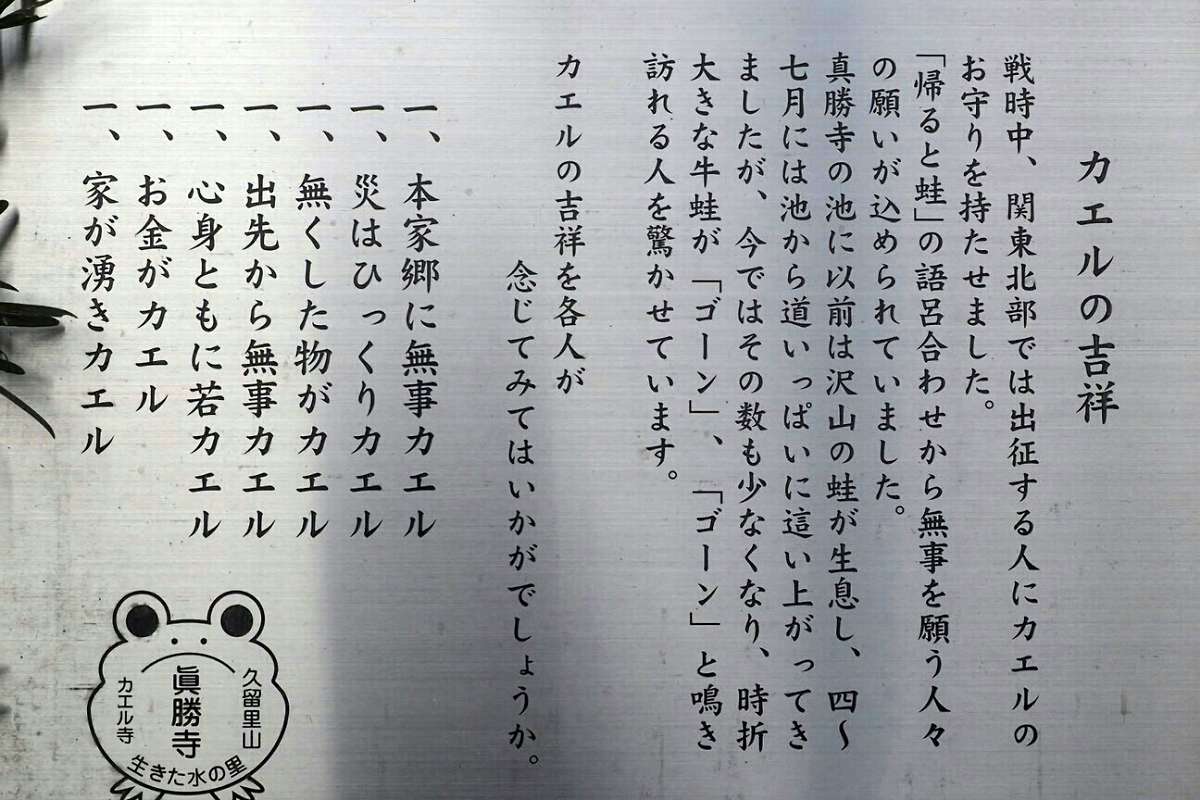 カエルの吉祥
戦時中、関東北部では出征する人にカエルの
お守りを持たせました。
「帰ると蛙」の語呂合わせから無事を願う人々
の願いが込められていました。
真勝寺の池に以前は沢山の蛙が生息し、四~
七月には池から道いっぱいに這い上がってき
ましたが、今ではその数も少なくなり、時折
大きな牛蛙が「ゴーン」、「ゴーン」と鳴き
訪れる人を驚かせています。
カエルの吉祥を各人が
念じてみてはいかがでしょうか。
一、本家郷に無事カエル
一、災はひっくりカエル
一、無くした物がカエル
一、出先から無事カエル
一、心身ともに若カエル
一、お金がカエル
一、家が湧きカエル
久留里山
眞勝寺
カエル寺
生きた水の里